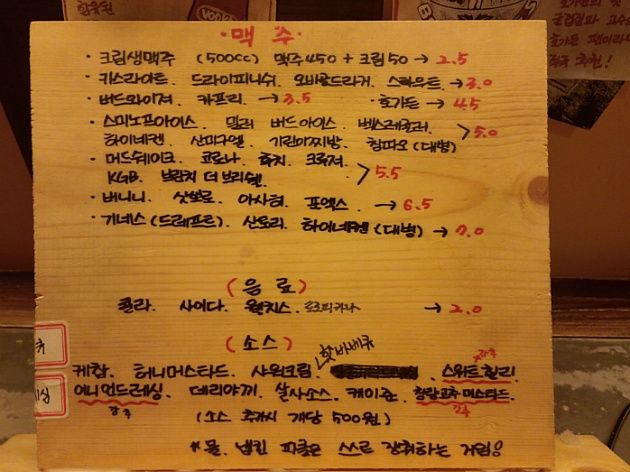 · 맥 주 ·
· 크림생맥주 (500cc) 맥주450 + 크림50 → 2.5
· 키스라이트. 드라이피니쉬. 오비골드라거. 스타우트. → 3.0
· 버드와이져. 카프리. → 3.5 · 호가든 → 4.5
· 스미노프아이스. 밀러 버드아이스. 벡스레귤러. > 5.0
하이네켄. 산미구엘. 기린이찌방. 칭따오 (대병)
· 머드쉐이크. 코로나. 후치. 크루져. > 5.5
KGB. 브랑치 더 브리쉘.
· 버니니. 삿뽀로. 아사히. 포엑스. → 6.5
· 기네스 (드래프트). 산토리. 하이네켄 (대병) → 7.0
( 음 료 )
콜라. 사이다. 웰치스. → 2.0
( 소스 )
케찹. 허니머스타드. 사워크림. 핫바베큐. 스위트칠리. 강추
어니언드레싱. 데리야끼. 살사소스. 케이준. 청양고추머스타드.
강추 강추
(소스 추가시 개당 500원)
*물. 냅킨 피클은 스스로 쟁취하는 거임!